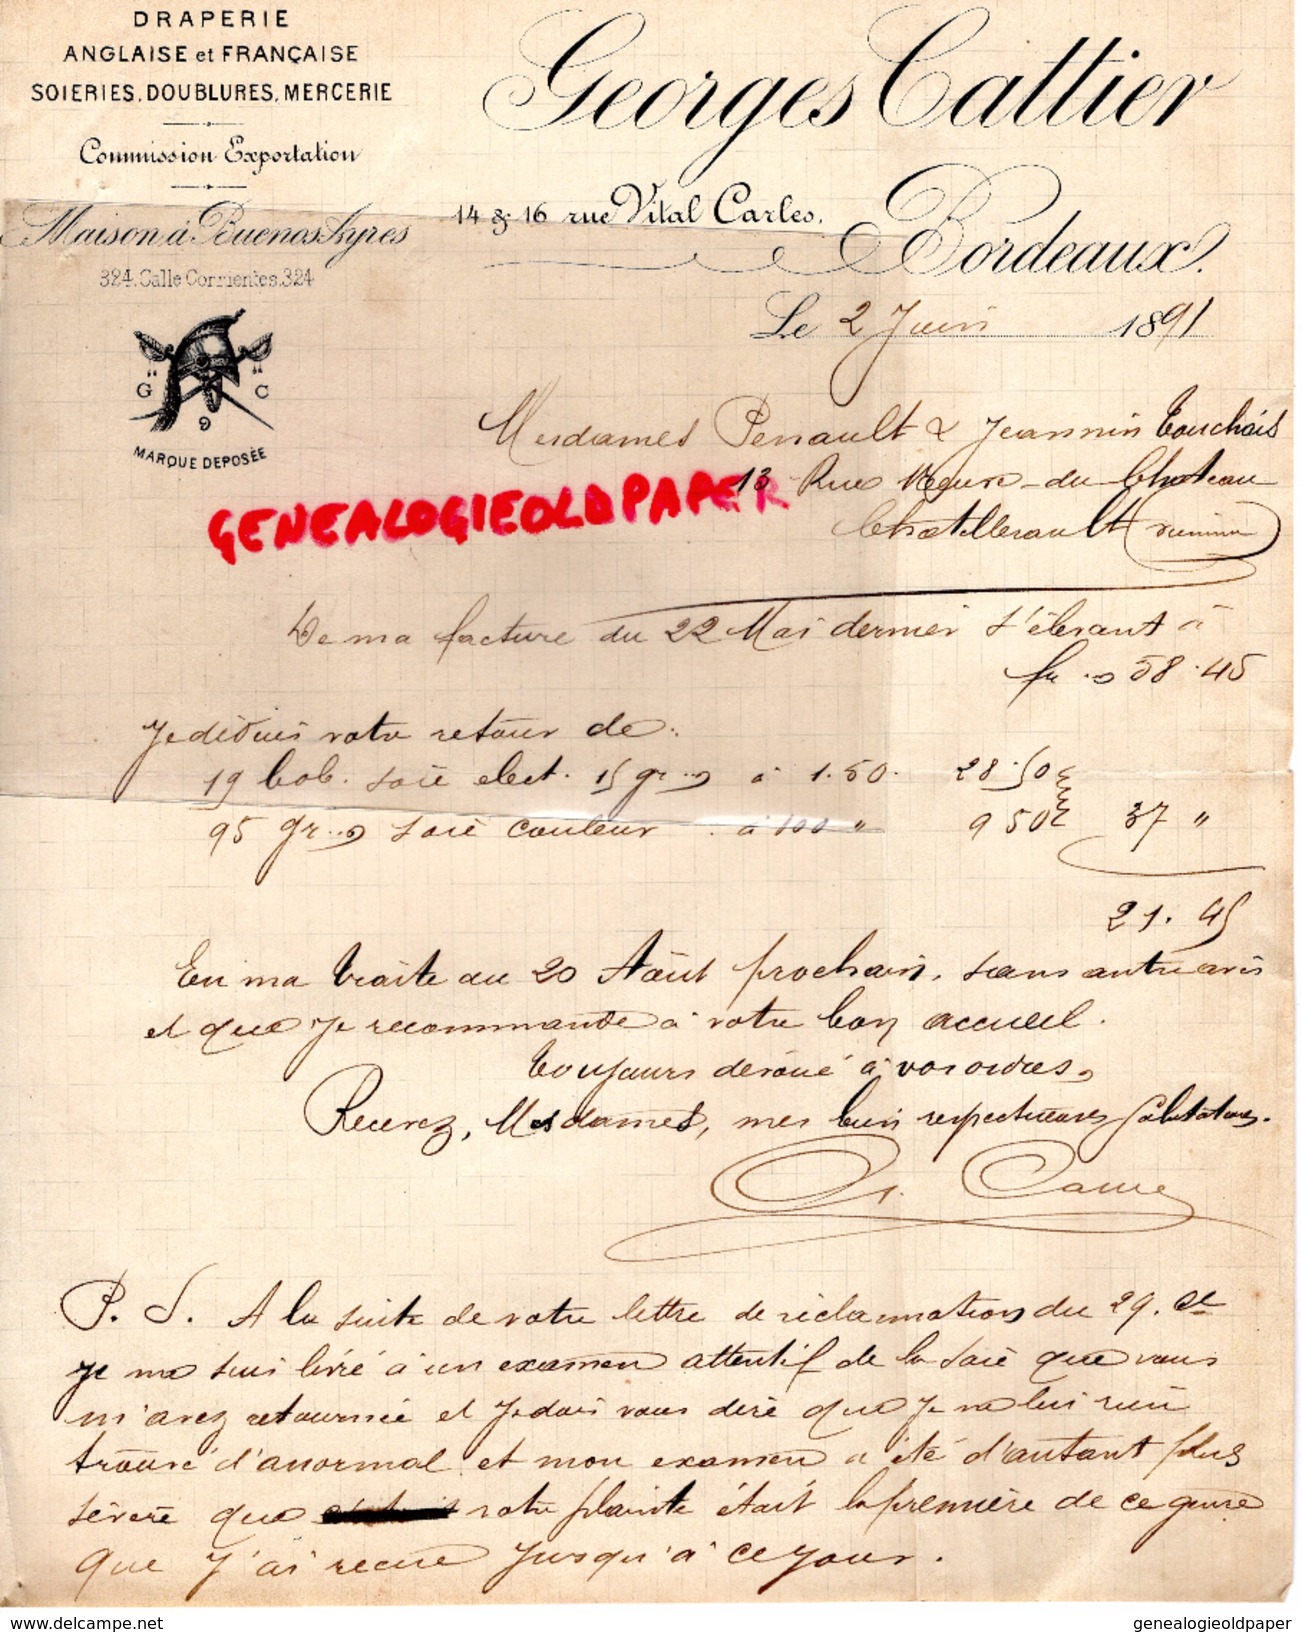 DRAPERIE
ANGLAISE et FRANÇAISE
SOIERIES, DOUBLURES, MERCERIE
Commission Exportation
Maison à Buenos Ayres
324, Calle Corrientes, 324
G C
MARQUE DEPOSÉE
Georges Cattier
14 & 16 rue Vital Carles,
Bordeaux.
Le 2 Juin 1891
Mesdames Perrault & Jeannin Touchais
13 Rue du Château
Chatellerault
GENEALOGIEOLDPAPER
De ma facture du 22 Mai dernier s'élevant à
fr 58.45
Je déduis votre retour de:
19 bob. soie elect. 15 gr à 1.50. 28.50
95 gr soie couleur à 100 " 9 50 37 "
21.45
En ma traite au 20 Août prochain, sans autre avis
et que je recommande à votre bon accueil.
Toujours dévoué à vos ordres,
Recevez, Mesdames, mes bien respectueuses salutations.
P. S. A la suite de votre lettre de réclamation du 29. ct
Je me suis livré à un examen attentif de la soie que vous
m'avez retournée et je dois vous dire que je ne lui rien
trouvé d'anormal et mon examen a été d'autant plus
sévère que votre plainte était la première de ce genre
que j'ai reçue jusqu'à ce jour.
www.delcampe.net
genealogieoldpaper